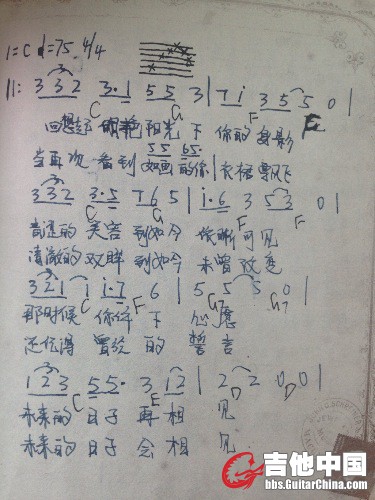 1=C ♩=75 4/4
||: 3 3 2 3·1 5 5 3 | 7 i 3 5 5 0 |
C G F E
回想起 明艳 阳光 下 你的 身影
55 65·
当再次 看到 如画 的你 衣裙 飘飞
3 3 2 3·5 7 6 5 | i·6 3 5 3 0 |
C G F F
青涩的 笑容 到如今 清晰 可见
清澈的 双眸 到如今 未曾 改变
3 2 1 1 i·7 6 | 5 5 5 0 |
C G7 G7
那时候 你许 下 心愿
还记得 曾经 的 誓言
1 2 3 5 5· 3 1 2 | 2 2 0 0 |
C E D D
未来的 日子 再 相 见
未来的 日子 会 相 见
吉他中国
bbs.GuitarChina.com